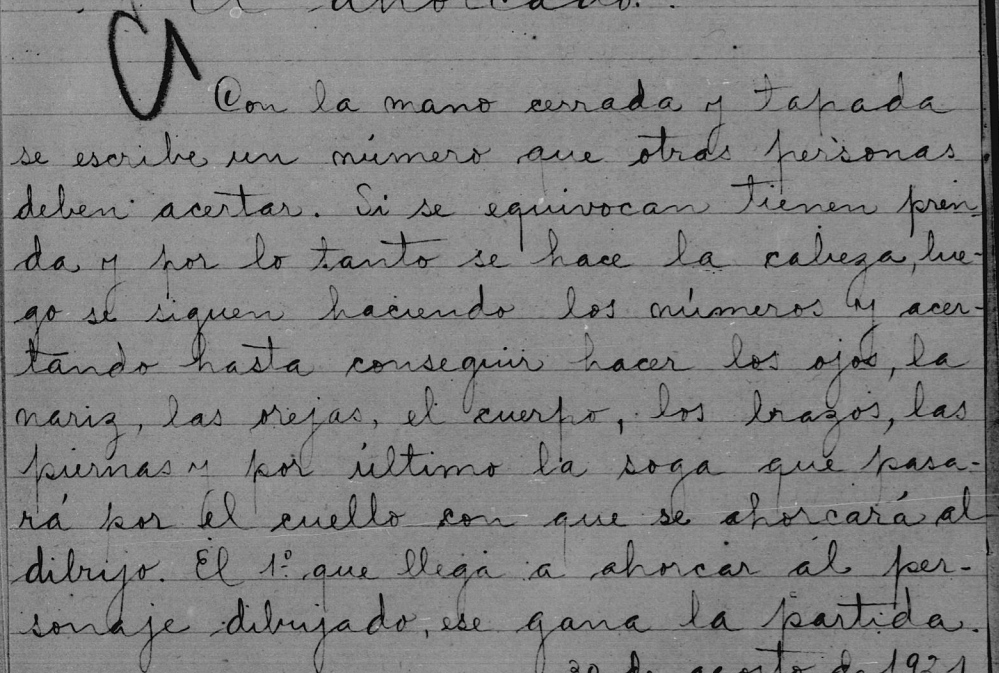 El ahorcado.
Con la mano cerrada y tapada
se escribe un número que otras personas
deben acertar. Si se equivocan tienen pren-
da y por lo tanto se hace la cabeza, lue-
go se siguen haciendo los números y acer-
tando hasta conseguir hacer los ojos, la
nariz, las orejas, el cuerpo, los brazos, las
piernas y por último la soga que pasa-
rá por el cuello con que se ahorcará al
dibujo. El 1º que llega a ahorcar al per-
sonaje dibujado, ese gana la partida.
30 de agosto de 1921